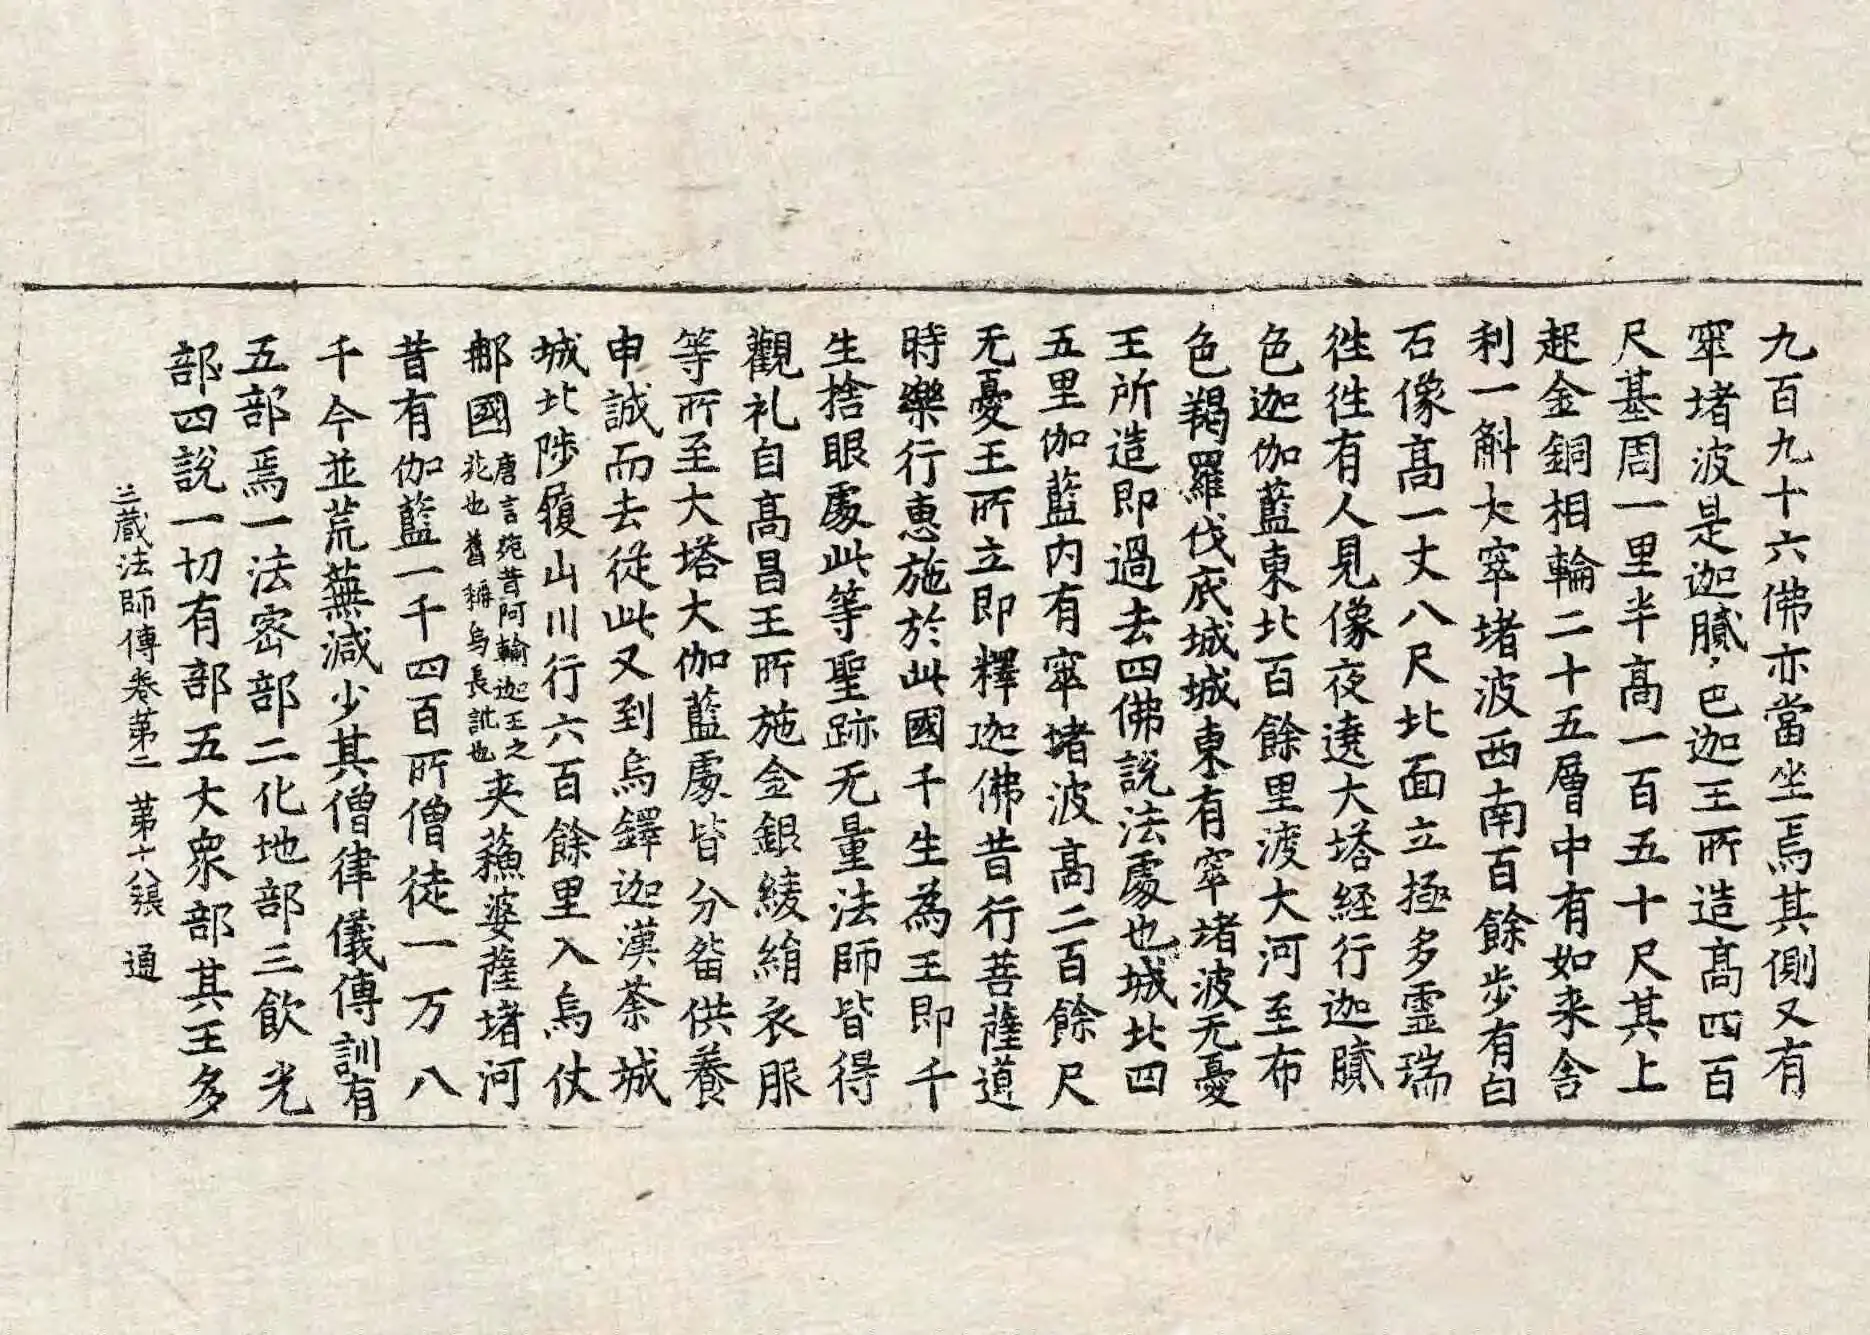 九百九十六佛亦當坐焉其側又有
窣堵波是迦膩色迦王所造高四百
尺基周一里半高一百五十尺其上
起金銅相輪二十五層中有如来舍
利一斛大窣堵波西南百餘步有白
石像高一丈八尺北面立極多靈瑞
往往有人見像夜遶大塔経行迦膩
色迦伽藍東北百餘里渡大河至布
色羯羅伐底城城東有窣堵波无憂
王所造即過去四佛說法處也城北四
五里伽藍内有窣堵波高二百餘尺
无憂王所立即釋迦佛昔行菩薩道
時樂行惠施於此國千生為王即千
生捨眼處此等聖跡无量法師皆得
觀礼自高昌王所施金銀綾絹衣服
等所至大塔大伽藍處皆分留供養
申誠而去従此又到烏鐸迦漢荼城
城北陟履山川行六百餘里入烏仗
那國唐言苑昔阿輸迦王之苑也舊稱烏長訛也夾蘇婆薩堵河
昔有伽藍一千四百所僧徒一万八
千今並荒蕪減少其僧律儀傳訓有
五部焉一法密部二化地部三飲光
部四說一切有部五大衆部其王多
三蔵法師傳巻苐二 苐十八張 通